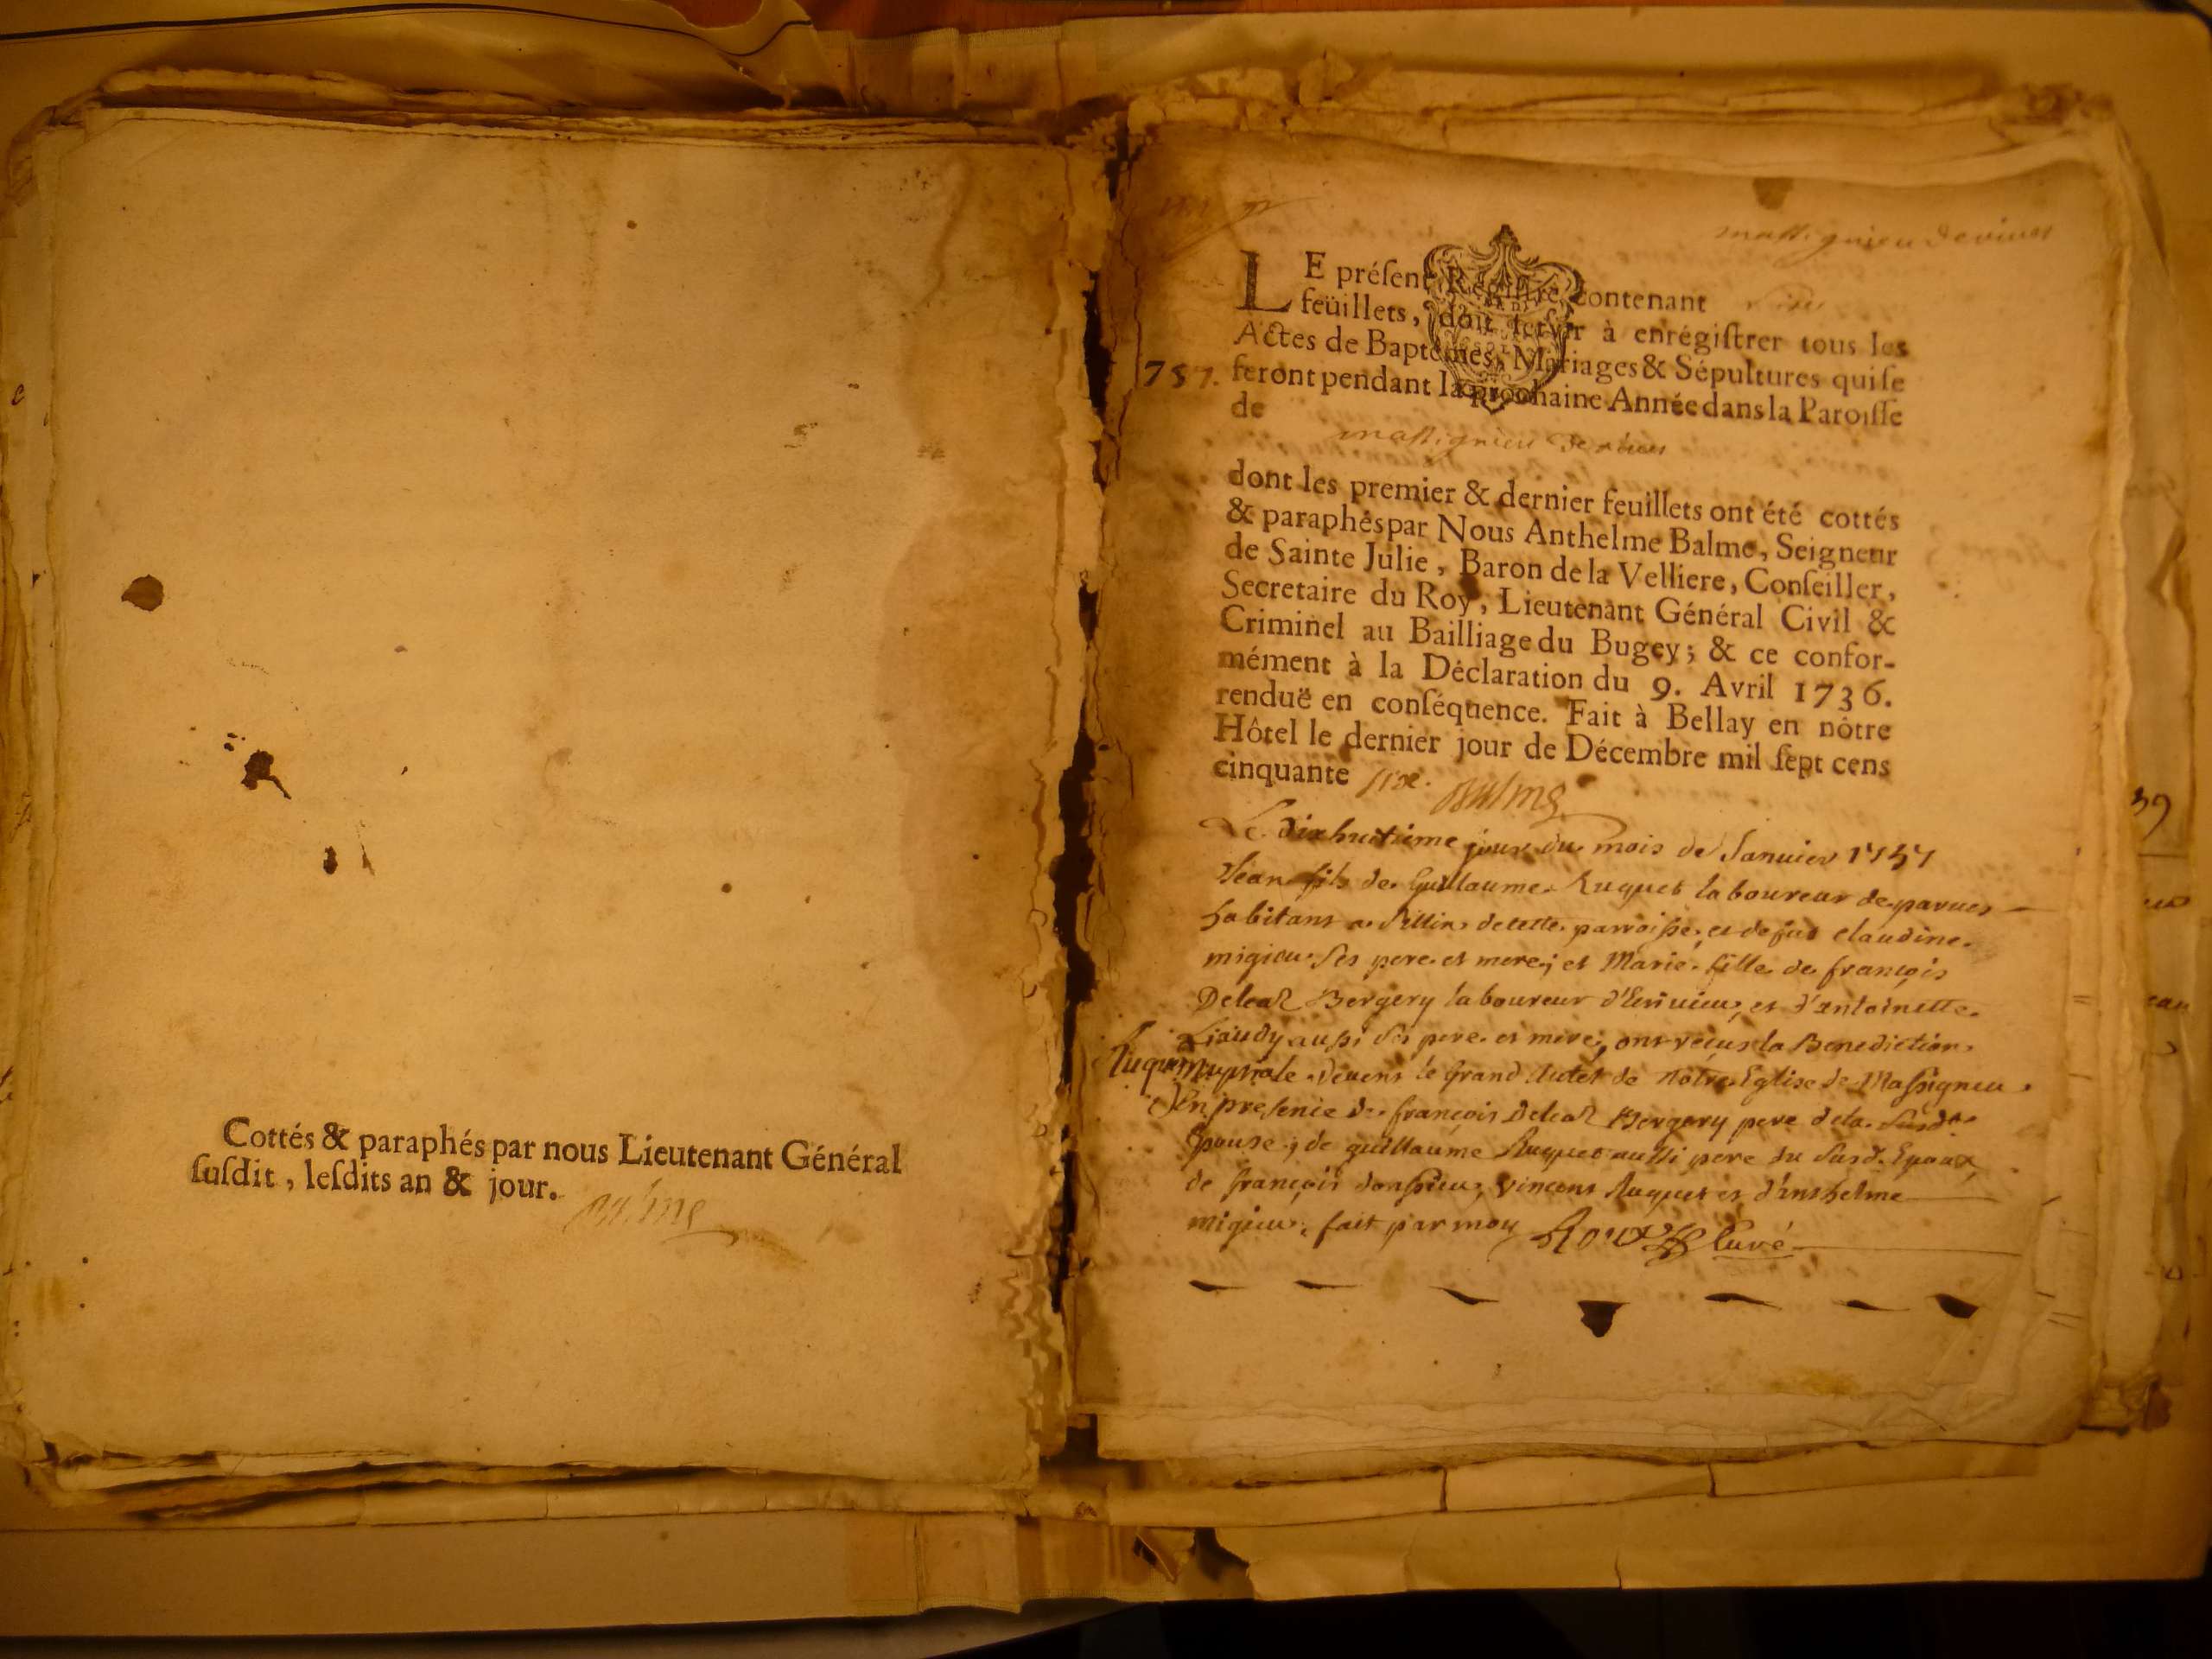 Cottés & paraphés par nous Lieutenant Général
ſuſdit, leſdits an & jour.
Balme
massignieu de rives
LE préſent Régiſtre contenant
feüillets, doit ſervir à enrégiſtrer tous les
Actes de Baptêmes, Mariages & Sépultures qui ſe
757.
feront pendant la prochaine Année dans la Paroiſſe
de
massignieu de rives
dont les premier & dernier feuillets ont été cottés
& paraphés par Nous Anthelme Balme, Seigneur
de Sainte Julie, Baron de la Velliere, Conſeiller,
Secretaire du Roy, Lieutenant Général Civil &
Criminel au Bailliage du Bugey; & ce confor-
mément à la Déclaration du 9. Avril 1736.
renduë en conſéquence. Fait à Bellay en nôtre
Hôtel le dernier jour de Décembre mil ſept cens
cinquante six. Balme
Le dixhuitieme jour du mois de Janvier 1757
Jean fils de Guillaume Ruquet laboureur de parves
habitant a Sillin de cette parroisse, et de fue claudine
migieu ses pere et mere; et Marie fille de françois
Deleaz Bergery laboureur d'Ecrivieu, et d'antoinette
Liaudy aussi ses pere et mere, ont reçus la Benediction
Ruquet
nuptiale devent le grand Autel de nôtre Eglise de Massigneu
En presence de françois Deleaz Bergery pere de la susd.te
Epouse; de guillaume Ruquet aussi pere du susd. Epoux,
de françois donsieu, vincent Ruquet et d'anthelme
migieu. fait par moy Roux Curé
39